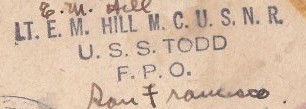 E. M. Hill
LT. E. M. HILL M. C. U. S. N. R.
U. S. S. TODD
F. P. O.
San Francisco